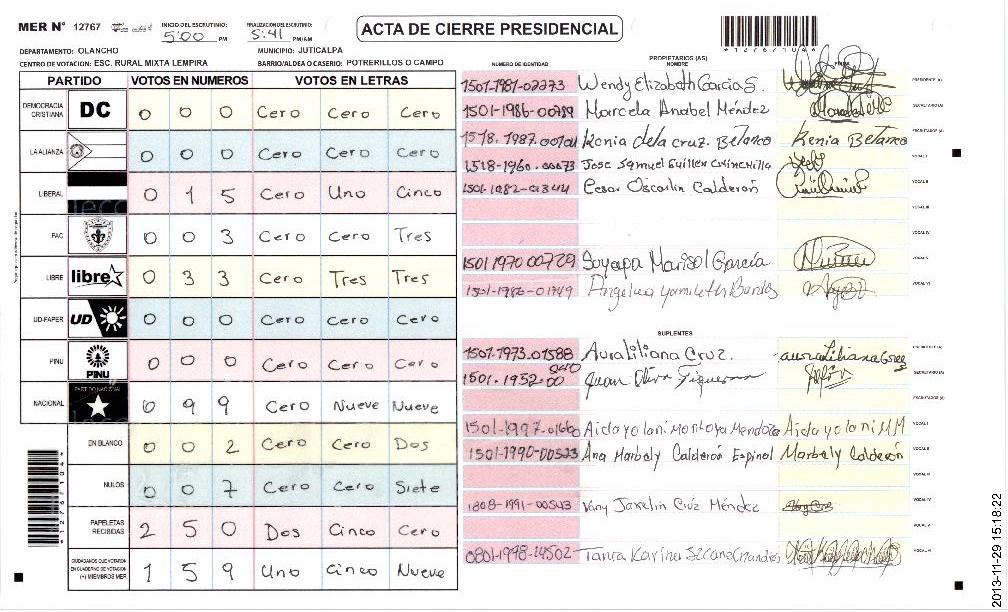 MER N° 12767 INICIO DEL ESCRUTINIO: 5:00 PM FINALIZACION DEL ESCRUTINIO: 5:41 PM/AM
ACTA DE CIERRE PRESIDENCIAL
DEPARTAMENTO: OLANCHO MUNICIPIO: JUTICALPA
CENTRO DE VOTACION: ESC. RURAL MIXTA LEMPIRA BARRIO/ALDEA O CASERIO: POTRERILLOS O CAMPO
PARTIDO VOTOS EN NUMEROS VOTOS EN LETRAS
DEMOCRACIA CRISTIANA DC 0 0 0 Cero Cero Cero
LA ALIANZA 0 0 0 Cero Cero Cero
LIBERAL 0 1 5 Cero Uno Cinco
FAC 0 0 3 Cero Cero Tres
LIBRE libre 0 3 3 Cero Tres Tres
UD-FAPER UD 0 0 0 Cero Cero Cero
PINU PINU 0 0 0 Cero Cero Cero
NACIONAL PARTIDO NACIONAL 0 9 9 Cero Nueve Nueve
EN BLANCO 0 0 2 Cero Cero Dos
NULOS 0 0 7 Cero Cero Siete
PAPELETAS RECIBIDAS 2 5 0 Dos Cinco Cero
CIUDADANOS QUE VOTARON EN CUADERNO DE VOTACION (+) MIEMBROS MER 1 5 9 Uno Cinco Nueve
PROPIETARIOS (AS)
NUMERO DE IDENTIDAD NOMBRE FIRMA
1501-1981-02273 Wendy Elizabeth Garcia S. PRESIDENTE (A)
1501-1986-00789 Marcela Anabel Méndez SECRETARIO (A)
1518-1987-00701 Kenia dela cruz. Betanco Kenia Betanco ESCRUTADOR (A)
1518-1960-00073 Jose Samuel Guillen Chinchilla VOCAL I
1501-1982-01344 Cesar Oscarlin Calderón VOCAL II
VOCAL III
VOCAL IV
1501 1970 00729 Suyapa Marisol García VOCAL V
1501-1986-01749 Angelica Yamileth Bardes VOCAL VI
SUPLENTES
1501-1973-01588 Aura liliana Cruz. PRESIDENTE (A)
1501-1952-00 040 Juan Oliva Figueroa SECRETARIO (A)
ESCRUTADOR (A)
1501-1997-01660 Aida yolani Montoya Mendoza Aida yolani MM VOCAL I
1501-1990-00523 Ana Marbely Calderón Espinal Marbely Calderón VOCAL II
VOCAL III
1808-1991-00543 Vany Jakelin Crúz Méndez VOCAL IV
VOCAL V
0801-1998-14502 Tanra Karina VOCAL VI
2013-11-29 15:18:22